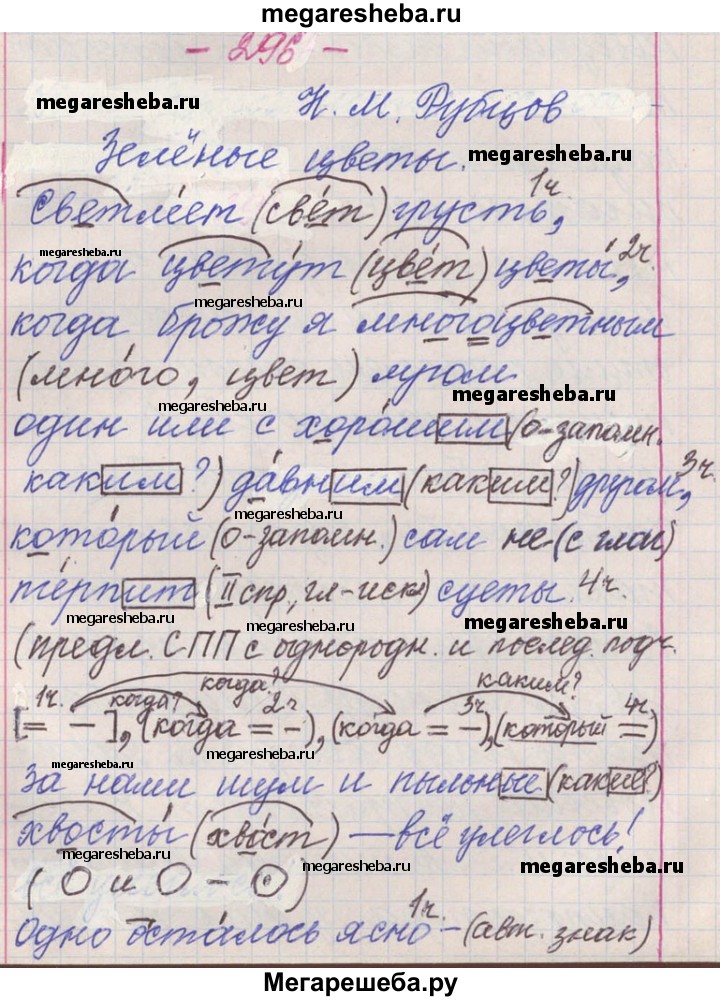 megaresheba.ru
- 296 -
megaresheba.ru
Н. М. Рубцов
Зелёные цветы.
megaresheba.ru
1ч.
Светлеет (свет) грусть,
megaresheba.ru
2ч.
когда цветут (цвет) цветы,
megaresheba.ru
когда брожу я многоцветным
(много, цвет) лугом
megaresheba.ru
megaresheba.ru
один или с хорошим (о-запомн.
megaresheba.ru
3ч.
каким?) давним (каким?) другом,
megaresheba.ru
который (о-запомн.) сам не (с глаг)
терпит (II спр, гл-искл) суеты. 4ч.
megaresheba.ru
megaresheba.ru
(предл. СПП с однородн. и послед. подч.
когда? когда? каким?
1ч. 2ч 3ч 4ч
[= -], (когда = -), (когда = -), (который =)
megaresheba.ru
За нами шум и пыльные (какие?)
megaresheba.ru
хвосты (хвост) — всё улеглось!
megaresheba.ru
megaresheba.ru
(О и О - О)
1ч.
Одно осталось ясно - (авт. знак)
Мегарешеба.ру